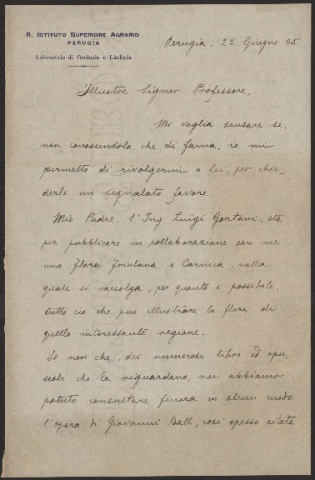 R. ISTITUTO SUPERIORE AGRARIO
PERUGIA
Laboratorio di Geologia e Litologia
Perugia, 22 Giugno 05
Illustre Signor Professore,
Mi voglia scusare se,
non conoscendola che di fama, io mi
permetto di rivolgermi a Lei, per chie-
derle un segnalato favore.
Mio Padre, l'Ing. Luigi Gortani, sta
per pubblicare in collaborazione con me
una Flora Friulana e Carnica, nella
quale si raccolga, per quanto è possibile,
tutto ciò che può illustrare la flora di
quella interessante regione.
Se non che, dei numerosi libri ed opu-
scoli che la riguardano, non abbiamo
potuto consultare finora in alcun modo
l'opera di Giovanni Ball, così spesso citata